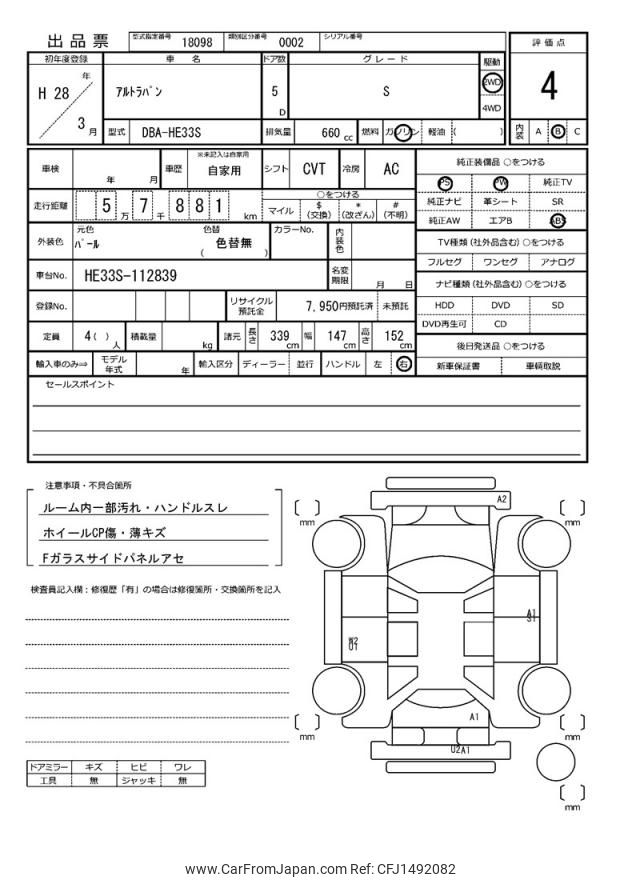 出品票 型式指定番号 18098 類別区分番号 0002 シリアル番号
評価点
4
初年度登録 車名 ドア数 グレード 駆動
H 28 年 3 月
アルトラパン 5 D S 2WD 4WD
型式 DBA-HE33S 排気量 660 cc 燃料 ガソリン 軽油 ( )
内装 A B C
車検 年 月 車歴 ※未記入は自家用 自家用 シフト CVT 冷房 AC
走行距離 5 万 7 千 8 8 1 km ○をつける
マイル $ (交換) * (改ざん) # (不明)
外装色 元色 パール 色替 色替無 ( ) カラーNo. 内装色
車台No. HE33S-112839 名変期限 月 日
登録No. リサイクル預託金 7,950円預託済 未預託
定員 4( ) 人 積載量 kg 諸元 長さ 339 cm 幅 147 cm 高さ 152 cm
輸入車のみ⇒ モデル年式 年 輸入区分 ディーラー 並行 ハンドル 左 右
純正装備品 ○をつける
PS PW 純正TV
純正ナビ 革シート SR
純正AW エアB ABS
TV種類 (社外品含む) ○をつける
フルセグ ワンセグ アナログ
ナビ種類 (社外品含む) ○をつける
HDD DVD SD
DVD再生可 CD
後日発送品 ○をつける
新車保証書 車輌取説
セールスポイント
注意事項・不具合箇所
ルーム内一部汚れ・ハンドルスレ
ホイールCP傷・薄キズ
Fガラスサイドパネルアセ
検査員記入欄：修復歴「有」の場合は修復箇所・交換箇所を記入
ドアミラー キズ ヒビ ワレ
工具 無 ジャッキ 無
A2
[ ] mm
[ ] mm
A1
S1
W2
U1
A1
U2A1
[ ] mm
[ ] mm
[ ] mm
www.CarFromJapan.com Ref: CFJ1492082